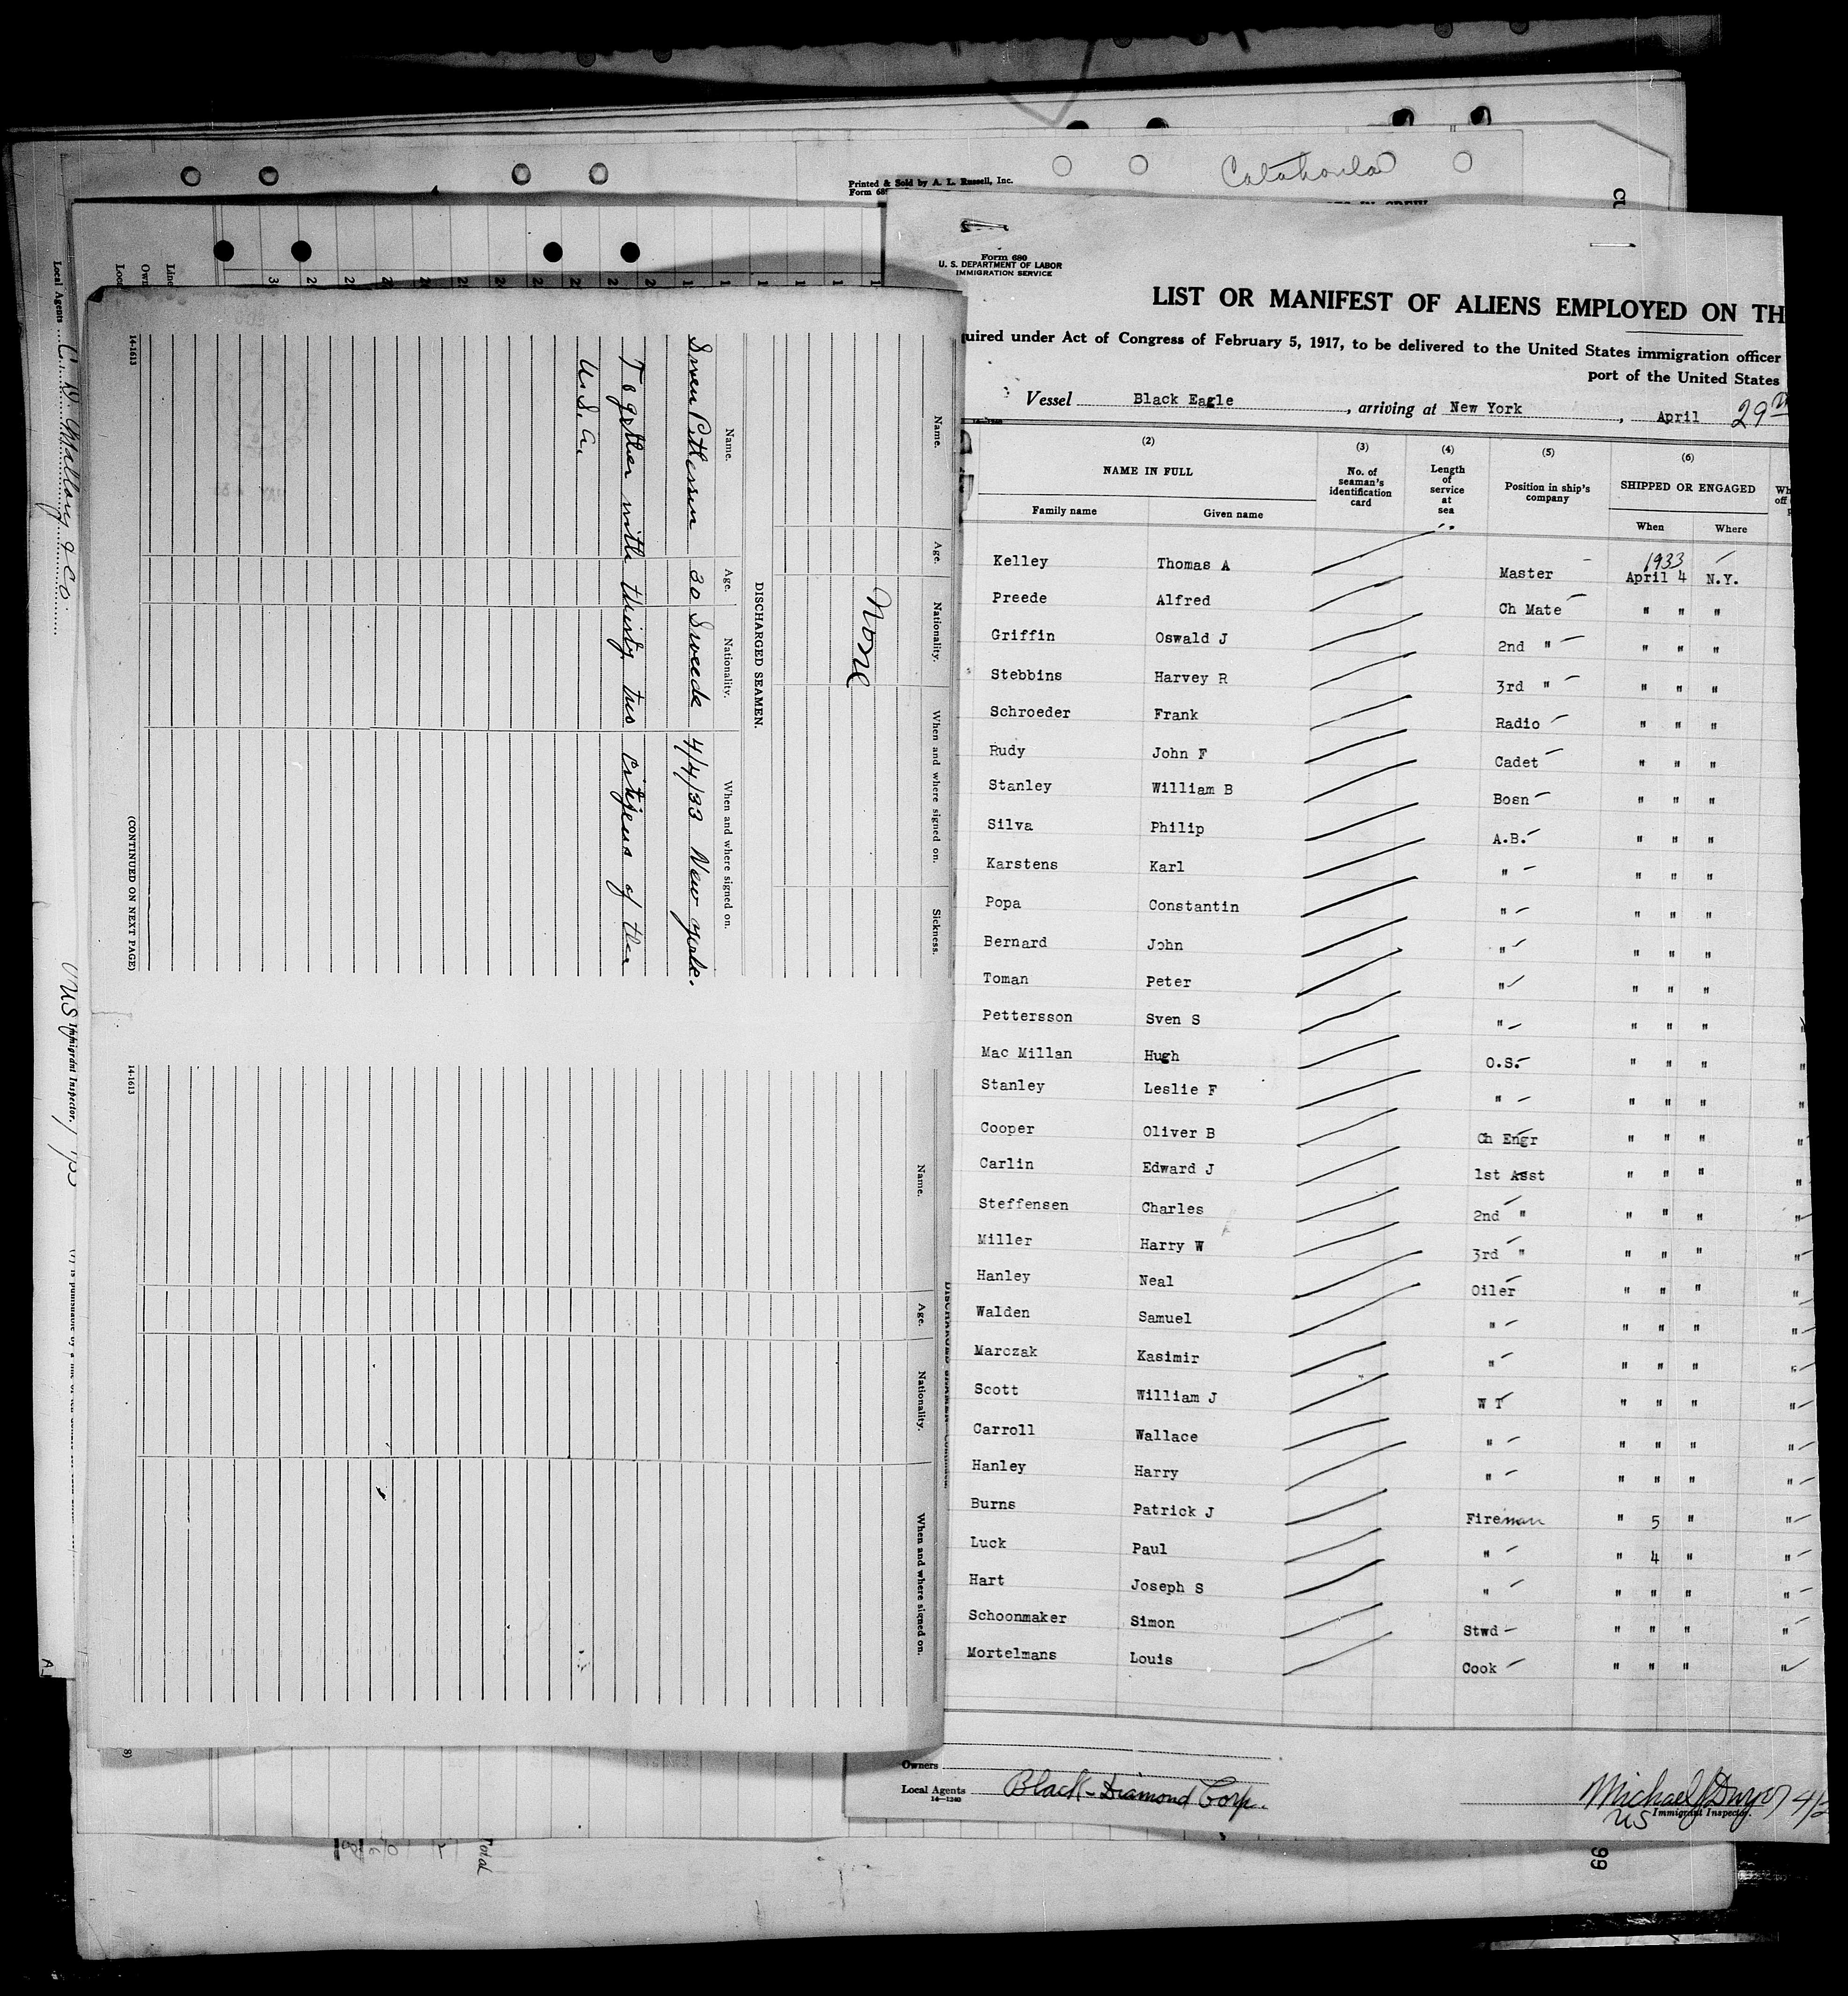 Catahoula
Printed & Sold by A. L. Russell, Inc.
Form 689
Form 680
U. S. DEPARTMENT OF LABOR
IMMIGRATION SERVICE
LIST OR MANIFEST OF ALIENS EMPLOYED ON TH
uired under Act of Congress of February 5, 1917, to be delivered to the United States immigration officer
port of the United States
Vessel Black Eagle, arriving at New York, April 29th
(2) (3) (4) (5) (6)
NAME IN FULL No. of seaman's identification card Length of service at sea Position in ship's company SHIPPED OR ENGAGED
Family name Given name When Where
1933
Kelley Thomas A Master April 4 N.Y.
Preede Alfred Ch Mate " " "
Griffin Oswald J 2nd " " " "
Stebbins Harvey R 3rd " " " "
Schroeder Frank Radio " " "
Rudy John F Cadet " " "
Stanley William B Bosn " " "
Silva Philip A.B. " " "
Karstens Karl " " " "
Popa Constantin " " " "
Bernard John " " " "
Toman Peter " " " "
Pettersson Sven S " " " "
Mac Millan Hugh O.S. " " "
Stanley Leslie F " " " "
Cooper Oliver B Ch Engr " " "
Carlin Edward J 1st Asst " " "
Steffensen Charles 2nd " " " "
Miller Harry W 3rd " " " "
Hanley Neal Oiler " " "
Walden Samuel " " " "
Marczak Kasimir " " " "
Scott William J W T " " "
Carroll Wallace " " " "
Hanley Harry " " " "
Burns Patrick J Fireman " 5 "
Luck Paul " " 4 "
Hart Joseph S " " " "
Schoonmaker Simon Stwd " " "
Mortelmans Louis Cook " " "
Owners
Local Agents Black-Diamond Corp.
14—1240
Michael J Dwyer 4/2
US Immigrant Inspector.
Name. Age. Nationality. When and where signed on. Sickness.
None
DISCHARGED SEAMEN.
Name. Age. Nationality. When and where signed on.
Sven Pettersson 30 Swede 4/4/33 New York.
Together with thirty two citizens of the
U.S.A.
14-1613 (CONTINUED ON NEXT PAGE)
Name. Age. Nationality. When and where signed on.
14-1613
Local Agents C. D. Mallory & Co.
US Immigrant Inspector.
Total
99